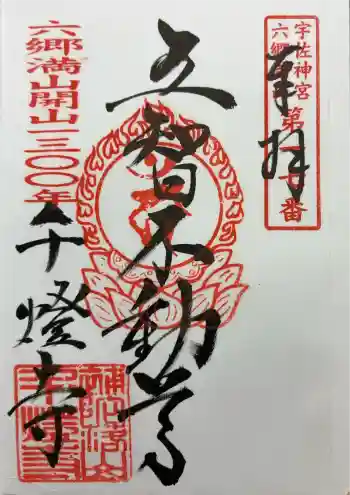 宇佐神宮
六郷
第
番
奉拝
五智不動尊
六郷満山開山一三〇〇年
千燈寺